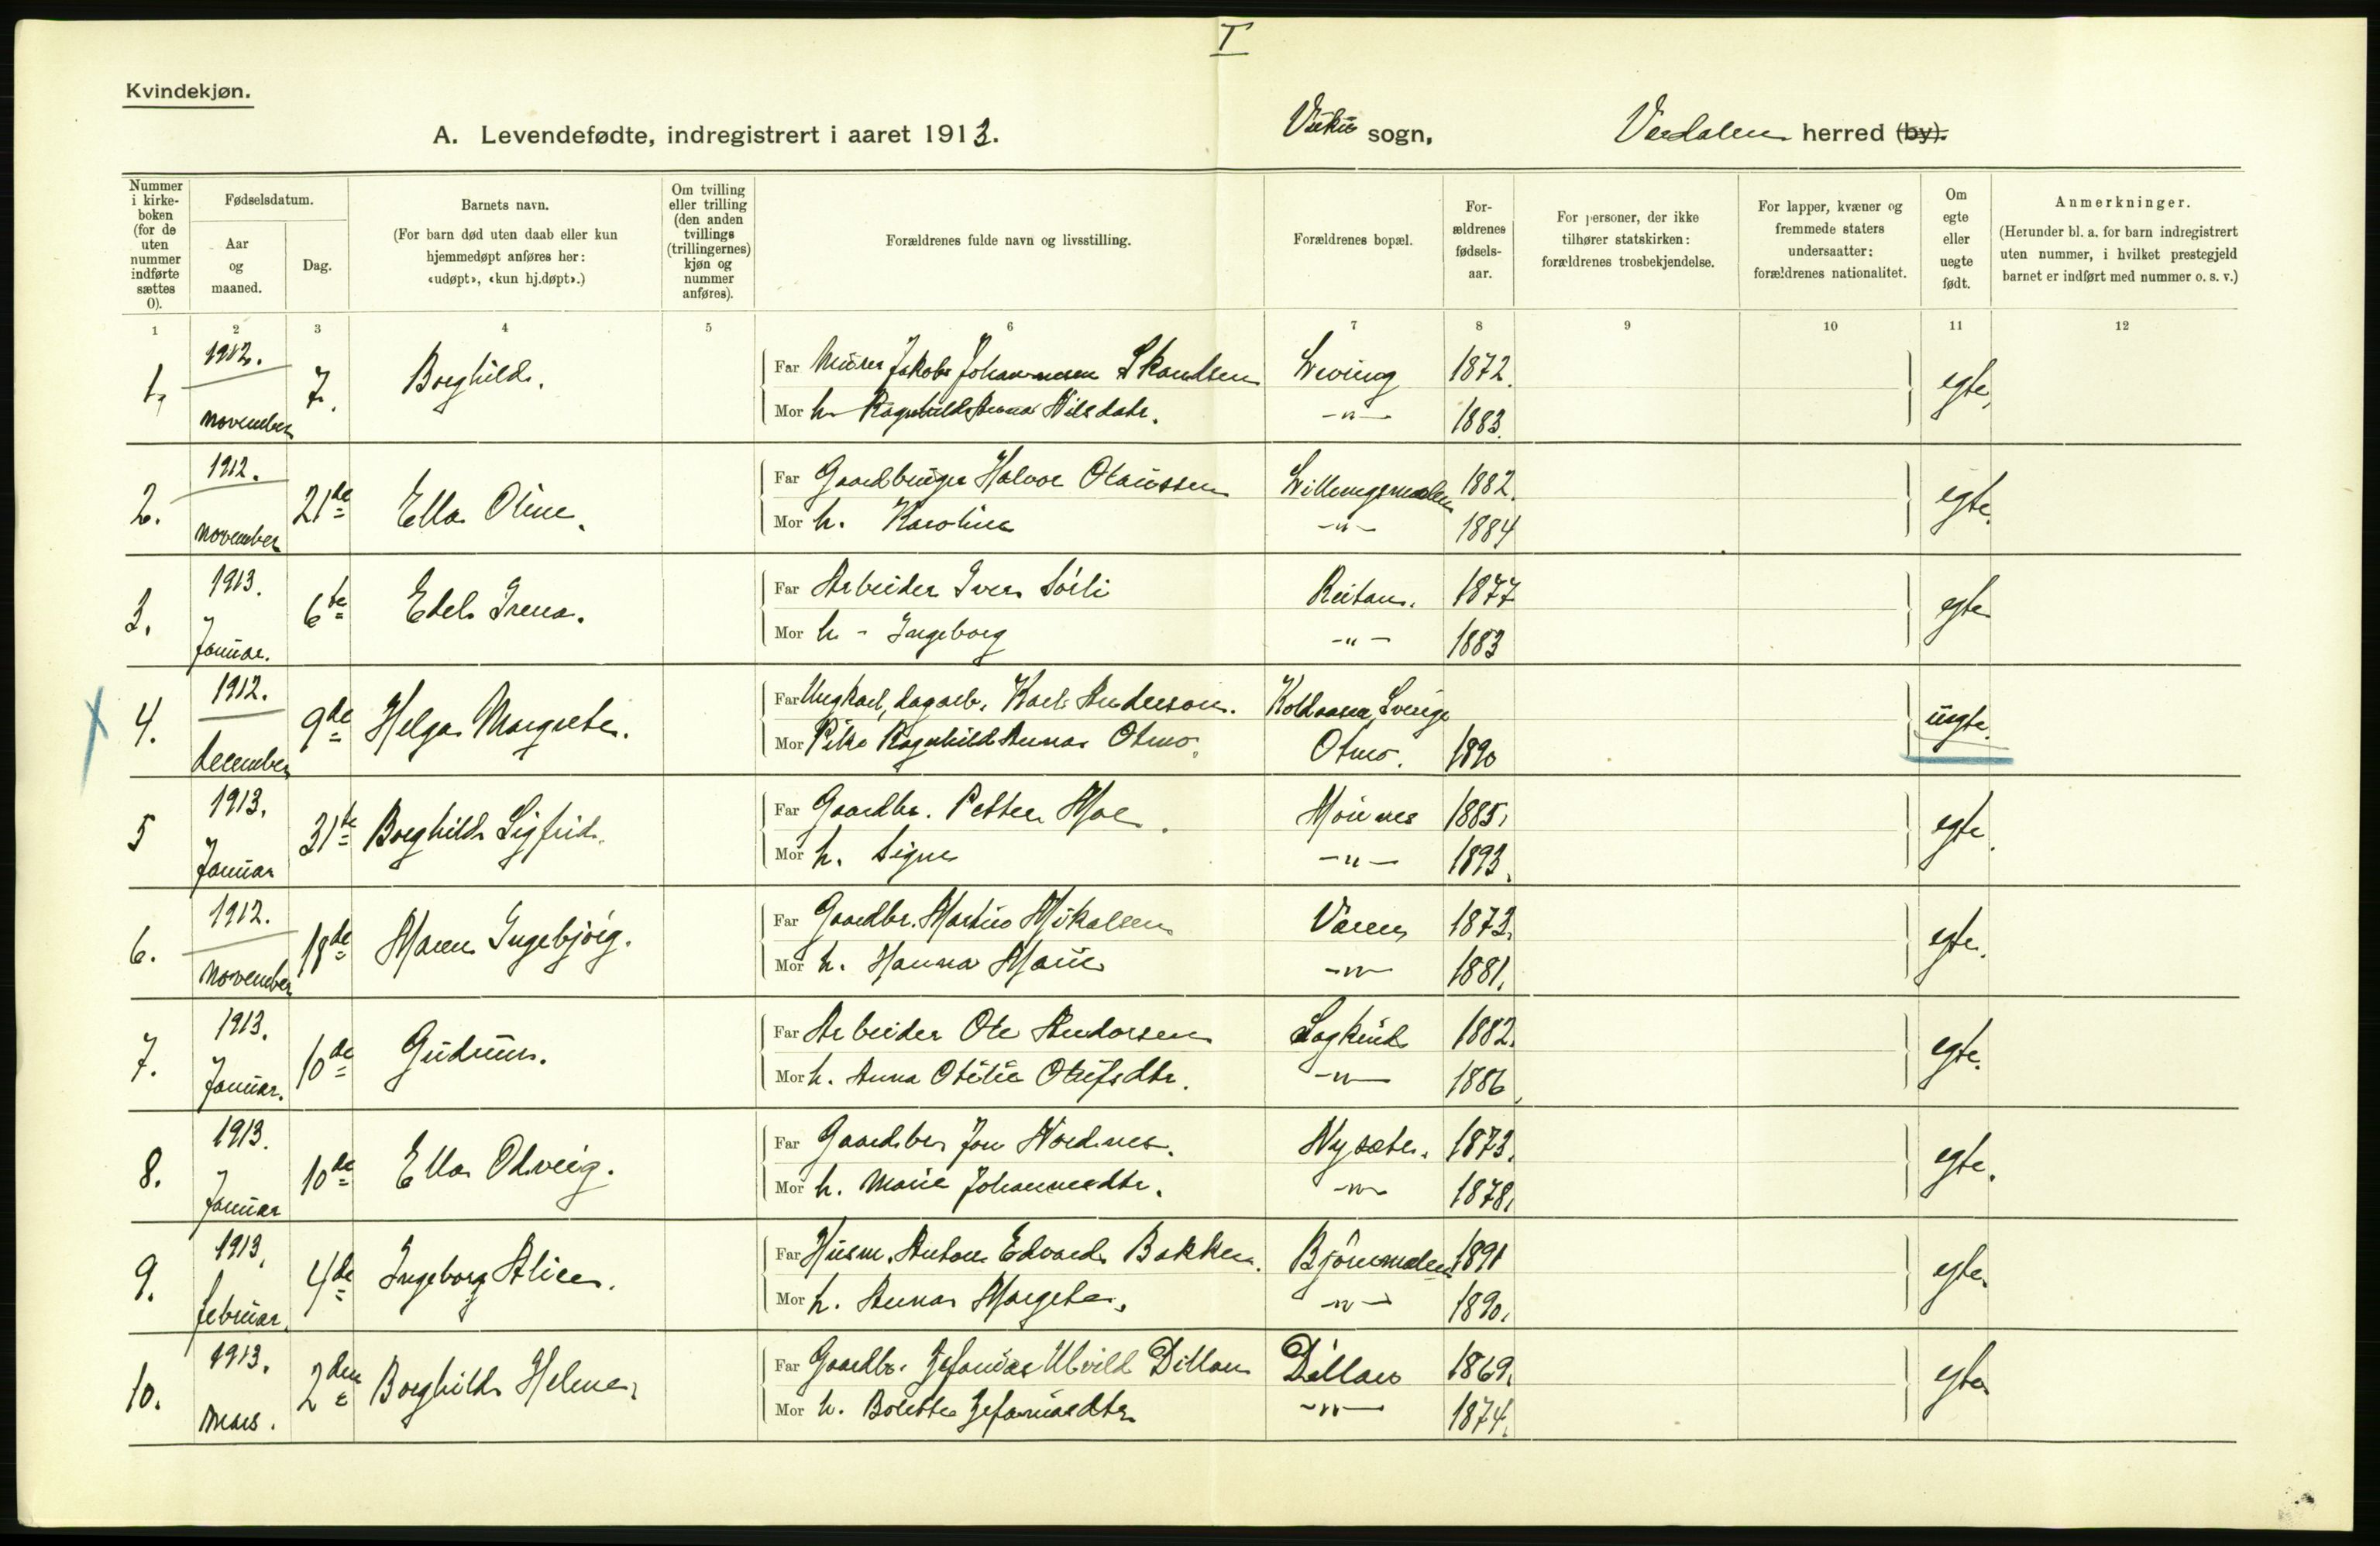 I
Kvindekjøn.
A. Levendefødte, indregistrert i aaret 1913. Vuku sogn, Verdalen herred (by).
Nummer i kirkeboken (for de uten nummer indførte sættes 0).
Fødselsdatum.
Aar og maaned.
Dag.
Barnets navn.
(For barn død uten daab eller kun hjemmedøpt anføres her: «udøpt», «kun hj.døpt».)
Om tvilling eller trilling (den anden tvillings (trillingernes) kjøn og nummer anføres).
Forældrenes fulde navn og livsstilling.
Forældrenes bopæl.
Forældrenes fødselsaar.
For personer, der ikke tilhører statskirken: forældrenes trosbekjendelse.
For lapper, kvæner og fremmede staters undersaatter: forældrenes nationalitet.
Om egte eller uegte født.
Anmerkninger.
(Herunder bl. a. for barn indregistrert uten nummer, i hvilket prestegjeld barnet er indført med nummer o. s. v.)
1 2 3 4 5 6 7 8 9 10 11 12
1. 1912. november 7. Borghild. egte,
Far Murer Jakob Johannesen Skandsen 1872.
Mor h. Ragnhild Anna Nilsdatr. -"- 1883.
2. 1912. november 21de Ella Oline. egte.
Far Gaardbruger Halvor Olaussen 1882.
Mor h. Karoline -"- 1884
3. 1913. Januar. 6te Edel Irena. egte
Far Arbeider Iver Sörli Reitan. 1877
Mor h - Ingeborg -"- 1883
4. 1912. december 9de Helga Margrete. uegte.
Far Ungkarl, dagarb. Karl Anderson. Koldaasen, Sverige
Mor Pike Ragnhild Anna Otmo. Otmo. 1890
5 1913. Januar 31te Borghild Sigfrid. egte.
Far Gaardbr. Petter Moe. 1885.
Mor h. Signe -"- 1893.
6. 1912. november 18de Maren Ingebjörg. egte.
Far Gaardbr. Martin Mikalsen 1873.
Mor h. Hanna Marie -"- 1881.
7. 1913. Januar. 10de Gudrun. egte.
Far Arbeider Ole Andorsen 1882.
Mor h. Anna Otilie Olufsdtr. -"- 1886.
8. 1913. Januar 10de Ella Odveig. egte.
Far Gaardbr Jon Nordnes. Nysæter. 1873.
Mor h. Marie Johannesdtr. -"- 1878.
9. 1913. februar. 4de Ingeborg Alice. egte.
Far Husm. Anton Edvard Bakken. 1891
Mor h. Anna Margrete. -"- 1890.
10. 1913. Mars. 2den Borghild Helene. egte
Far Gaardbr. Zefanias Ulvild Dillan Dillan 1869.
Mor h. Bolette Zefaniasdtr -"- 1874.